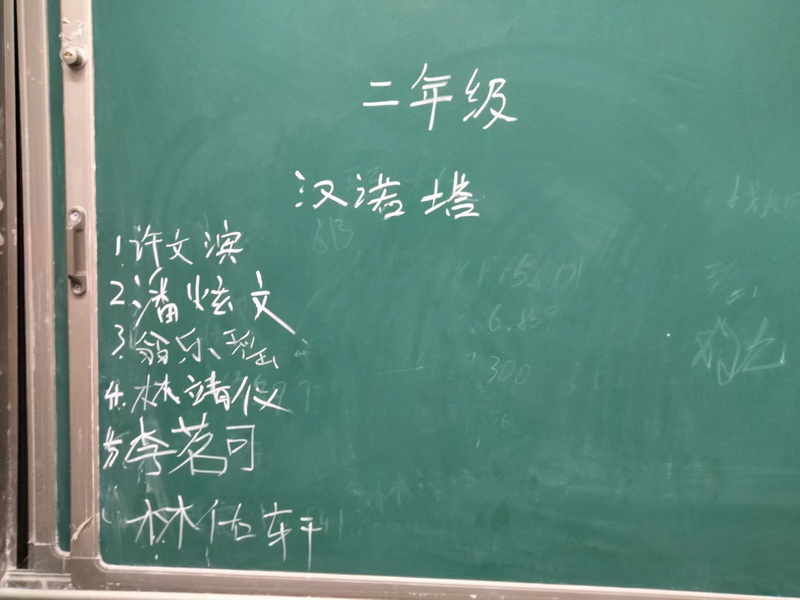 二年级
汉诺塔
1.许文滨
2.潘炫文
3.翁乐
4.林靖仪
5.李茗可
林佑轩